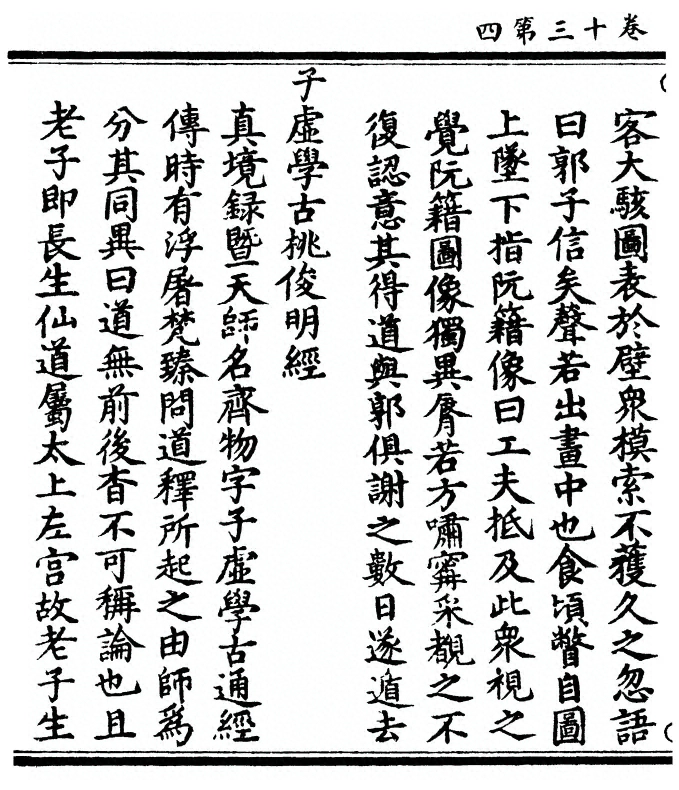 卷十三第四
客大駭圖表於壁衆模索不獲久之忽語
曰郭子信矣聲若出畫中也食頃瞥自圖
上墜下指阮籍像曰工夫抵及此衆視之
覺阮籍圖像獨異脣若方嘯甯采覩之不
復認意其得道與郭俱謝之數日遂遁去
子虛學古桃俊明經
真境録暨天師名齊物字子虛學古通經
傳時有浮屠梵臻問道釋所起之由師爲
分其同異曰道無前後杳不可稱論也且
老子即長生仙道屬太上左宫故老子生